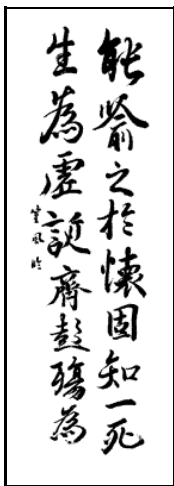 能喻之於懷固知一死
生為虛誕齊彭殤為